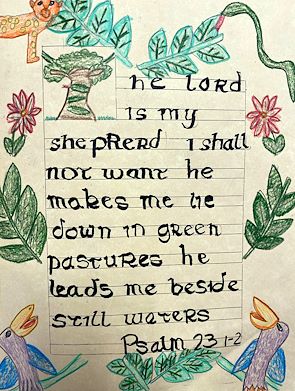 The LORD
is my
shepherd I shall
not want he
makes me lie
down in green
pastures he
leads me beside
still waters
Psalm 23 1-2